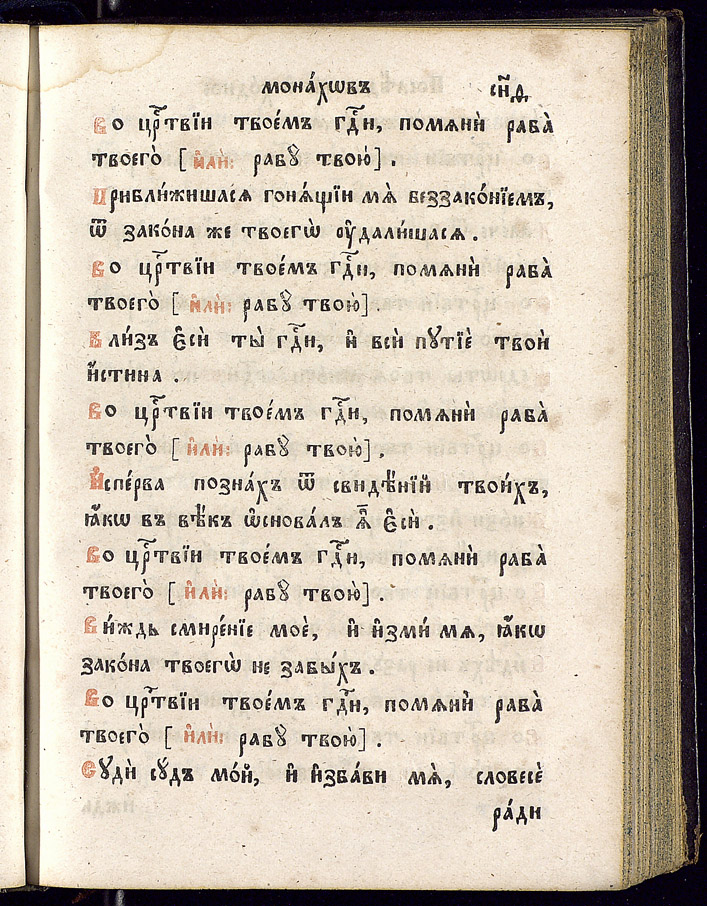 мона́хѡвъ сн҃ѳ
Во црⷭ҇твїи твое́мъ гдⷭ҇и, помѧнѝ раба̀
твоего̀ [ и҆лѝ: рабꙋ̀ твою̀].
Прибли́жишасѧ гонѧ́щїи мѧ̀ беззако́нїемъ,
ѿ зако́на же твоегѡ̀ ᲂу҆дали́шасѧ.
Во црⷭ҇твїи твое́мъ гдⷭ҇и, помѧнѝ раба̀
твоего̀ [ и҆лѝ: рабꙋ̀ твою̀]
Бли́зъ є҆сѝ ты̀ гдⷭ҇и, и҆ всѝ пꙋтїѐ твоѝ
и҆́стина.
Во црⷭ҇твїи твое́мъ гдⷭ҇и, помѧнѝ раба̀
твоего̀ [ и҆лѝ: рабꙋ̀ твою̀].
И҆спе́рва позна́хъ ѿ свидѣ́нїй твои́хъ,
ꙗ҆́кѡ въ вѣ́къ ѡ҆снова́лъ ѧ҆̀ є҆сѝ.
Во црⷭ҇твїи твое́мъ гдⷭ҇и, помѧнѝ раба̀
твоего̀ [ и҆лѝ: рабꙋ̀ твою̀].
Ви́ждь смире́нїе моѐ, и҆ и҆зми́ мѧ, ꙗ҆́кѡ
зако́на твоегѡ̀ не забы́хъ.
Во црⷭ҇твїи твое́мъ гдⷭ҇и, помѧнѝ раба̀
твоего̀ [ и҆лѝ: рабꙋ̀ твою̀].
Сꙋдѝ сꙋ́дъ мо́й, и҆ и҆зба́ви мѧ̀, словесѐ
ра́ди